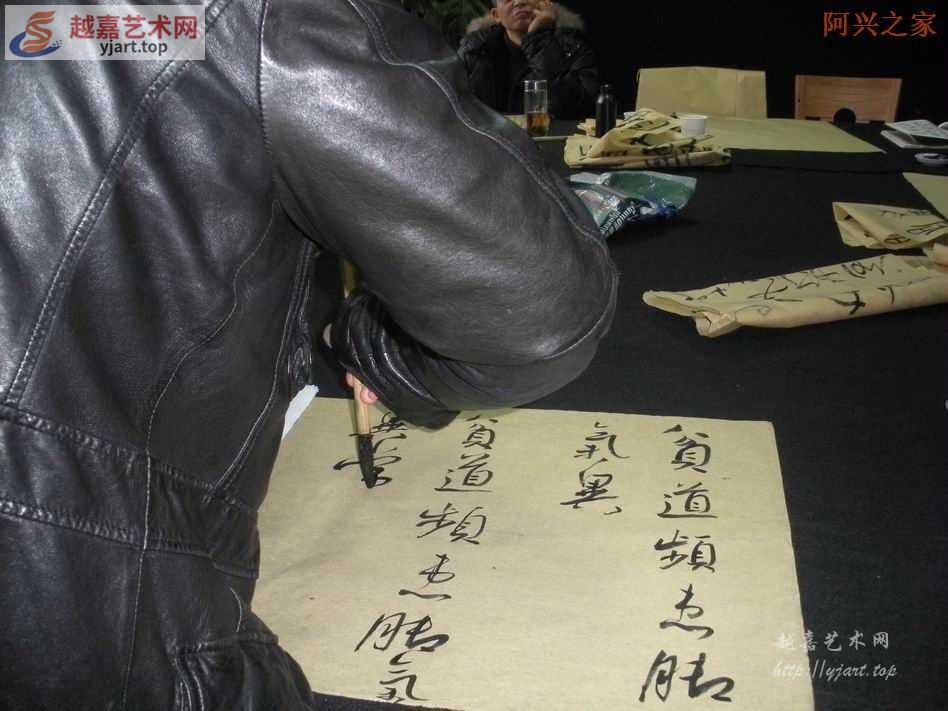 越嘉艺术网
yjart.top
阿兴之家
貧道頻患脚
氣異
貧道頻患脚氣
異常
越嘉艺术网
http://yjart.top